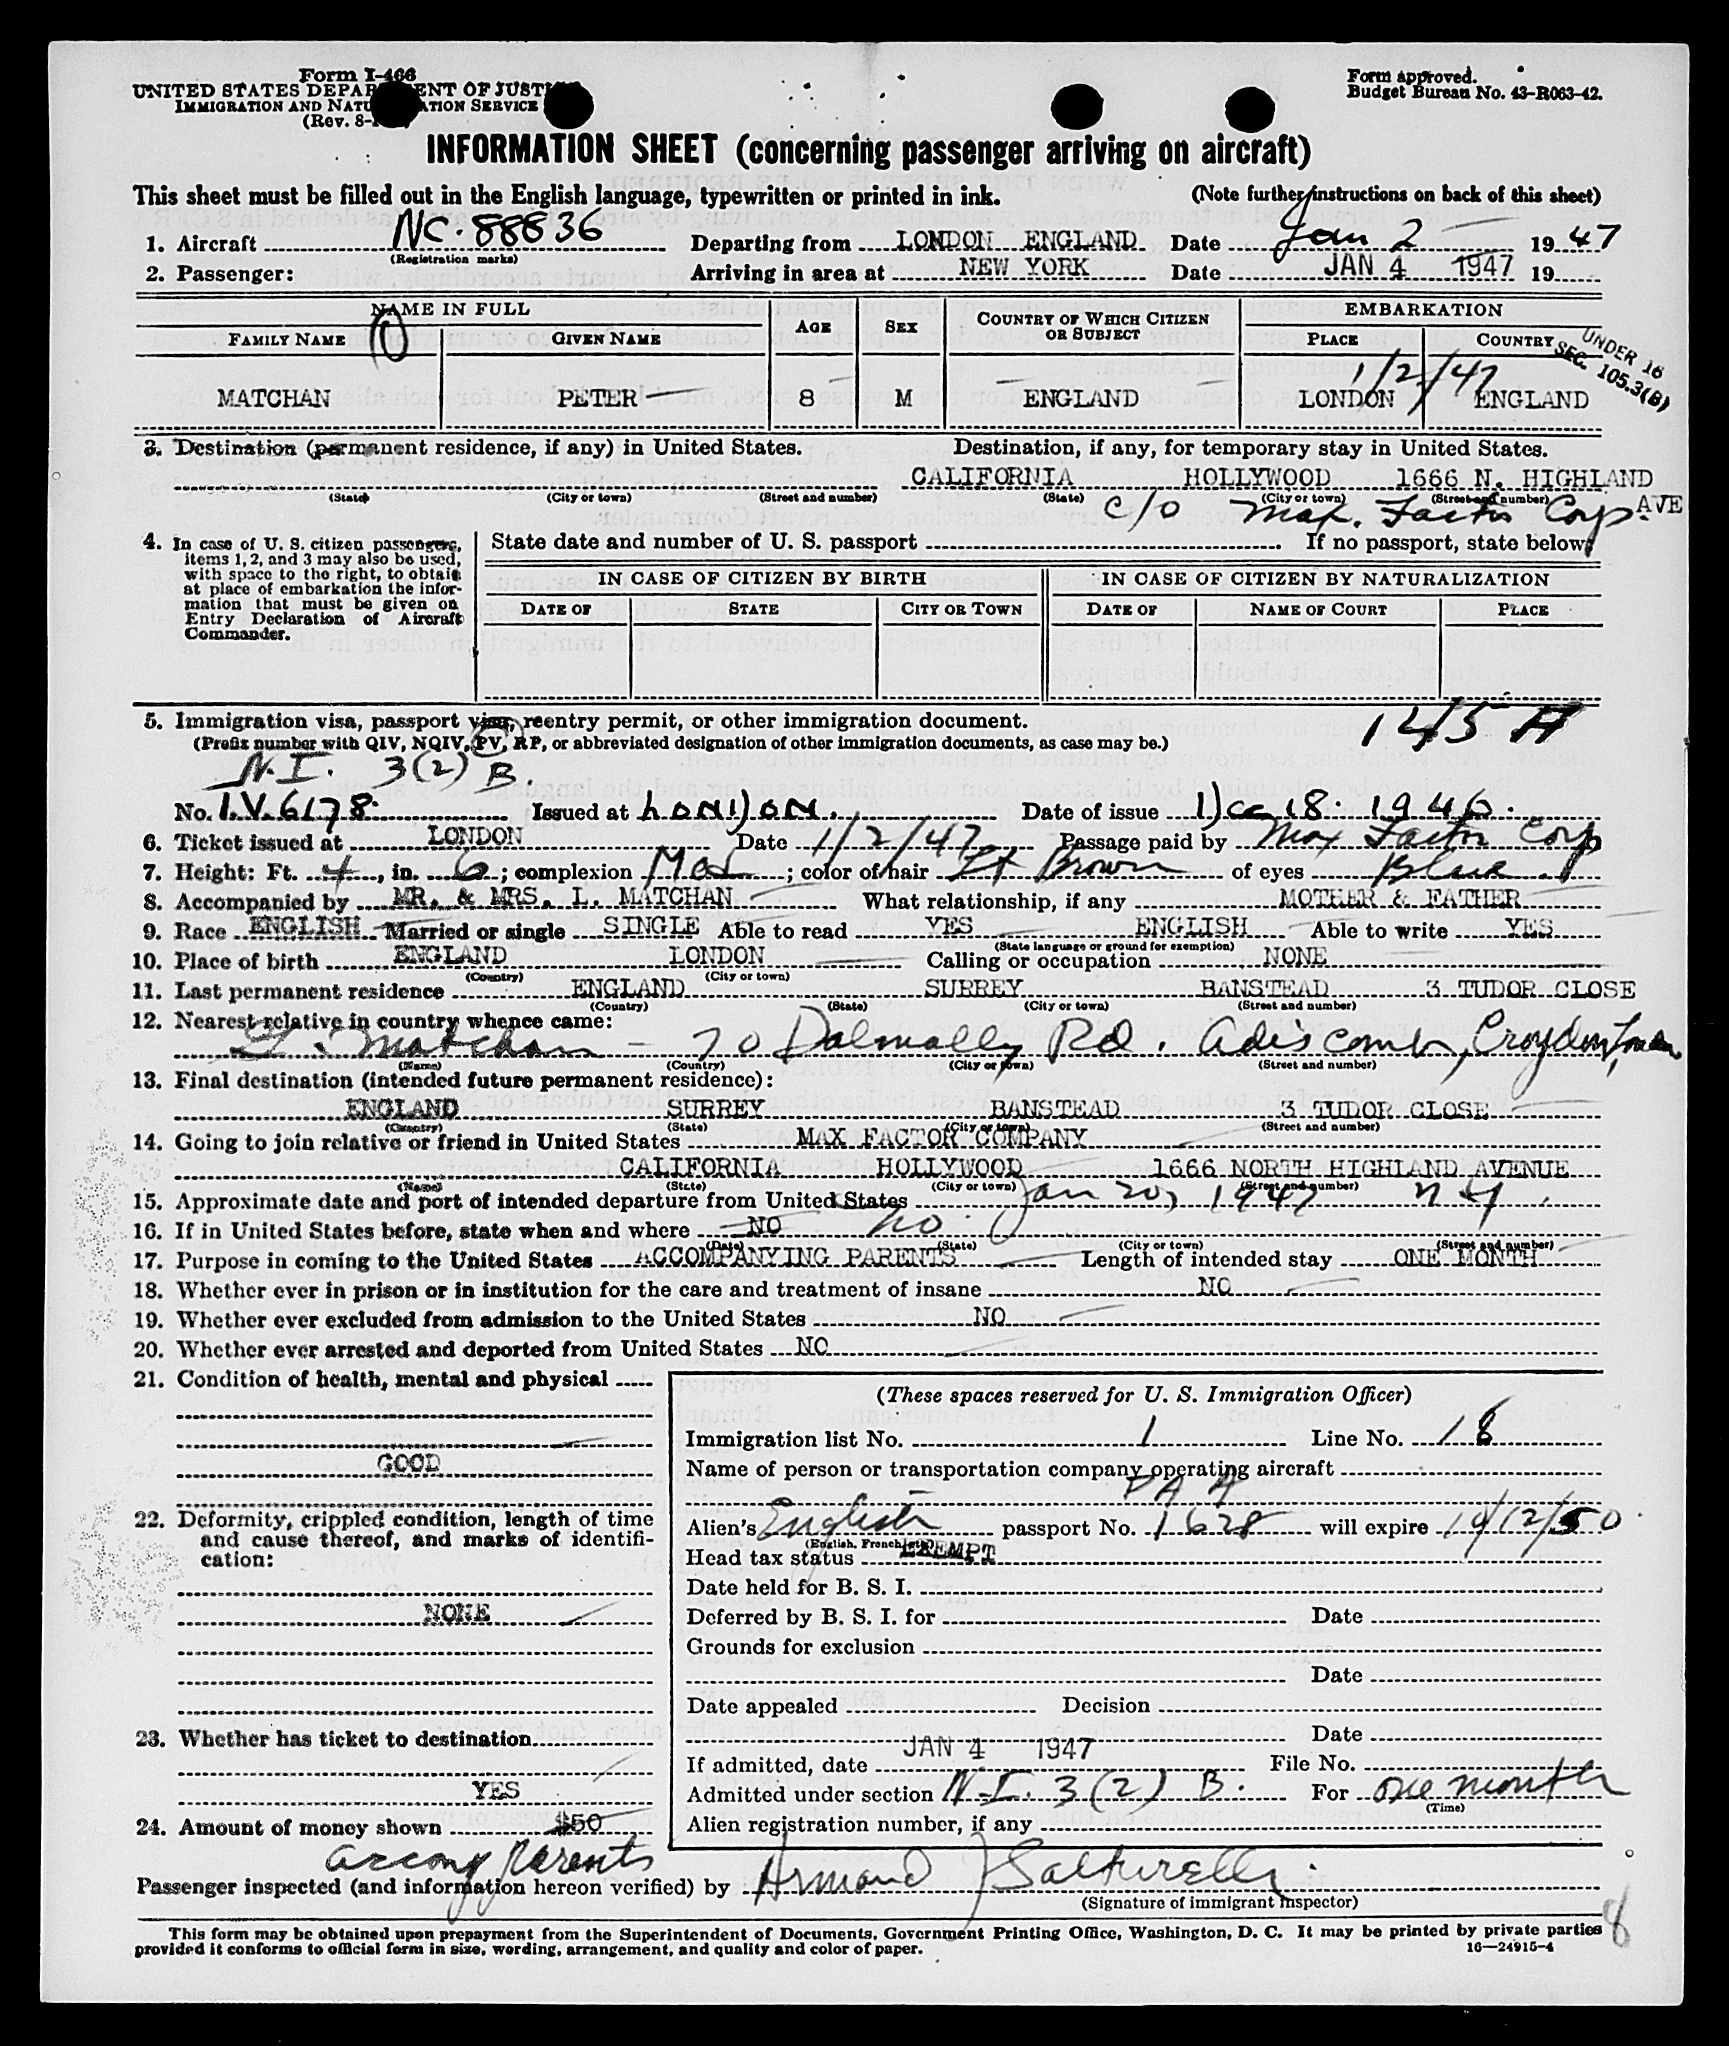 Form I-466
UNITED STATES DEPARTMENT OF JUSTICE
IMMIGRATION AND NATURALIZATION SERVICE
(Rev. 8-
Form approved.
Budget Bureau No. 43-R063-42.
INFORMATION SHEET (concerning passenger arriving on aircraft)
This sheet must be filled out in the English language, typewritten or printed in ink. (Note further instructions on back of this sheet)
1. Aircraft NC. 88836 Departing from LONDON ENGLAND Date Jan 2 19 47
(Registration marks)
2. Passenger: Arriving in area at NEW YORK Date JAN 4 1947 19
NAME IN FULL AGE SEX COUNTRY OF WHICH CITIZEN OR SUBJECT EMBARKATION
FAMILY NAME GIVEN NAME PLACE COUNTRY
UNDER 16
SEC. 105.3(B)
1/2/47
MATCHAN PETER 8 M ENGLAND LONDON ENGLAND
3. Destination (permanent residence, if any) in United States. Destination, if any, for temporary stay in United States.
CALIFORNIA HOLLYWOOD 1666 N. HIGHLAND AVE
(State) (City or town) (Street and number) (State) (City or town) (Street and number)
c/o Max. Factor Corp.
4. In case of U. S. citizen passengers, items 1, 2, and 3 may also be used, with space to the right, to obtain at place of embarkation the information that must be given on Entry Declaration of Aircraft Commander.
State date and number of U. S. passport If no passport, state below:
IN CASE OF CITIZEN BY BIRTH IN CASE OF CITIZEN BY NATURALIZATION
DATE OF STATE CITY OR TOWN DATE OF NAME OF COURT PLACE
5. Immigration visa, passport visa, reentry permit, or other immigration document.
(Prefix number with QIV, NQIV, PV, RP, or abbreviated designation of other immigration documents, as case may be.)
N.I. 3(2) B.
No. I.V. 6178 Issued at LONDON. Date of issue Dec 18. 1946.
6. Ticket issued at LONDON Date 1/2/47 Passage paid by Max Factor Corp
7. Height: Ft. 4, in. 6; complexion Med; color of hair Lt Brown of eyes Blue
8. Accompanied by MR. & MRS. L. MATCHAN What relationship, if any MOTHER & FATHER
9. Race ENGLISH Married or single SINGLE Able to read YES ENGLISH Able to write YES
(State language or ground for exemption)
10. Place of birth ENGLAND LONDON Calling or occupation NONE
(Country) (City or town)
11. Last permanent residence ENGLAND SURREY BANSTEAD 3 TUDOR CLOSE
(Country) (State) (City or town) (Street and number)
12. Nearest relative in country whence came:
Matchan - 70 Dalmally Rd. Adiscomb, Croydon, London
(Name) (Country) (City or town) (Street and number)
13. Final destination (intended future permanent residence):
ENGLAND SURREY BANSTEAD 3 TUDOR CLOSE
(Country) (State) (City or town) (Street and number)
14. Going to join relative or friend in United States MAX FACTOR COMPANY
CALIFORNIA HOLLYWOOD 1666 NORTH HIGHLAND AVENUE
(Name) (State) (City or town) (Street and number)
15. Approximate date and port of intended departure from United States Jan 20, 1947 N Y.
16. If in United States before, state when and where NO no.
(Date) (State) (City or town) (Street and number)
17. Purpose in coming to the United States ACCOMPANYING PARENTS Length of intended stay ONE MONTH
18. Whether ever in prison or in institution for the care and treatment of insane NO
19. Whether ever excluded from admission to the United States NO
20. Whether ever arrested and deported from United States NO
21. Condition of health, mental and physical
GOOD
22. Deformity, crippled condition, length of time and cause thereof, and marks of identification:
NONE
23. Whether has ticket to destination
YES
24. Amount of money shown $50
accomp Parents
(These spaces reserved for U. S. Immigration Officer)
Immigration list No. 1 Line No. 18
Name of person or transportation company operating aircraft
PAA
Alien's English passport No. 1628 will expire 10/12/50
(English, French, etc.)
Head tax status EXEMPT
Date held for B. S. I.
Deferred by B. S. I. for Date
Grounds for exclusion
Date
Date appealed Decision
Date
If admitted, date JAN 4 1947 File No.
Admitted under section N.I. 3(2) B. For one month
(Time)
Alien registration number, if any
Passenger inspected (and information hereon verified) by Armand J Salturelli.
(Signature of immigrant inspector)
This form may be obtained upon prepayment from the Superintendent of Documents, Government Printing Office, Washington, D. C. It may be printed by private parties
provided it conforms to official form in size, wording, arrangement, and quality and color of paper. 16—24915-4
8